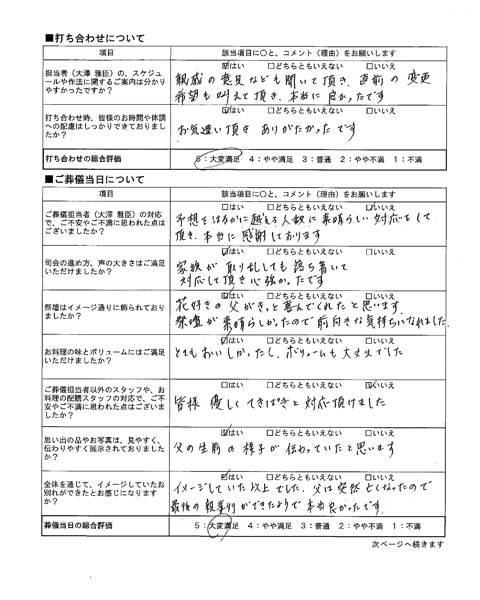 ■打ち合わせについて
項目 該当項目に○と、コメント（理由）をお願いします
担当者（大澤 雅臣）の、スケジュールや作法に関するご案内は分かりやすかったですか？
☑はい □どちらともいえない □いいえ
親戚の意見なども聞いて頂き、直前の変更
希望も叶えて頂き、本当に良かったです
打ち合わせ時、皆様のお時間や体調への配慮はしっかりできておりましたか？
☑はい □どちらともいえない □いいえ
お気遣い頂き ありがたかったです
打ち合わせの総合評価 5：大変満足 4：やや満足 3：普通 2：やや不満 1：不満
■ご葬儀当日について
項目 該当項目に○と、コメント（理由）をお願いします
ご葬儀担当者（大澤 雅臣）の対応で、ご不安やご不満に思われた点はございましたか？
□はい □どちらともいえない ☑いいえ
予想をはるかに越える人数に素晴らしい対応をして
頂き、本当に感謝しております
司会の進め方、声の大きさはご満足いただけましたか？
☑はい □どちらともいえない □いいえ
家族が取り乱しても落ち着いて
対応して頂き心強かったです
祭壇はイメージ通りに飾られておりましたか？
☑はい □どちらともいえない □いいえ
花好きの父がきっと喜んでくれたと思います
祭壇が素晴らしかったので前向きな気持ちになれました
お料理の味とボリュームにはご満足いただけましたか？
☑はい □どちらともいえない □いいえ
とてもおいしかったし、ボリュームも大丈夫でした
ご葬儀担当者以外のスタッフや、お料理の配膳スタッフの対応で、ご不安やご不満に思われた点はございましたか？
□はい □どちらともいえない ☑いいえ
皆様 優しくてきぱきと対応頂けました
思い出の品やお写真は、見やすく、伝わりやすく展示されておりましたか？
☑はい □どちらともいえない □いいえ
父の生前の様子が伝わっていたと思います
全体を通じて、イメージしていたお別れができたとお感じになりますか？
☑はい □どちらともいえない □いいえ
イメージしていた以上でした。父は突然亡くなったので
最後の親孝行ができたようで本当良かったです
葬儀当日の総合評価 5：大変満足 4：やや満足 3：普通 2：やや不満 1：不満
次ページへ続きます